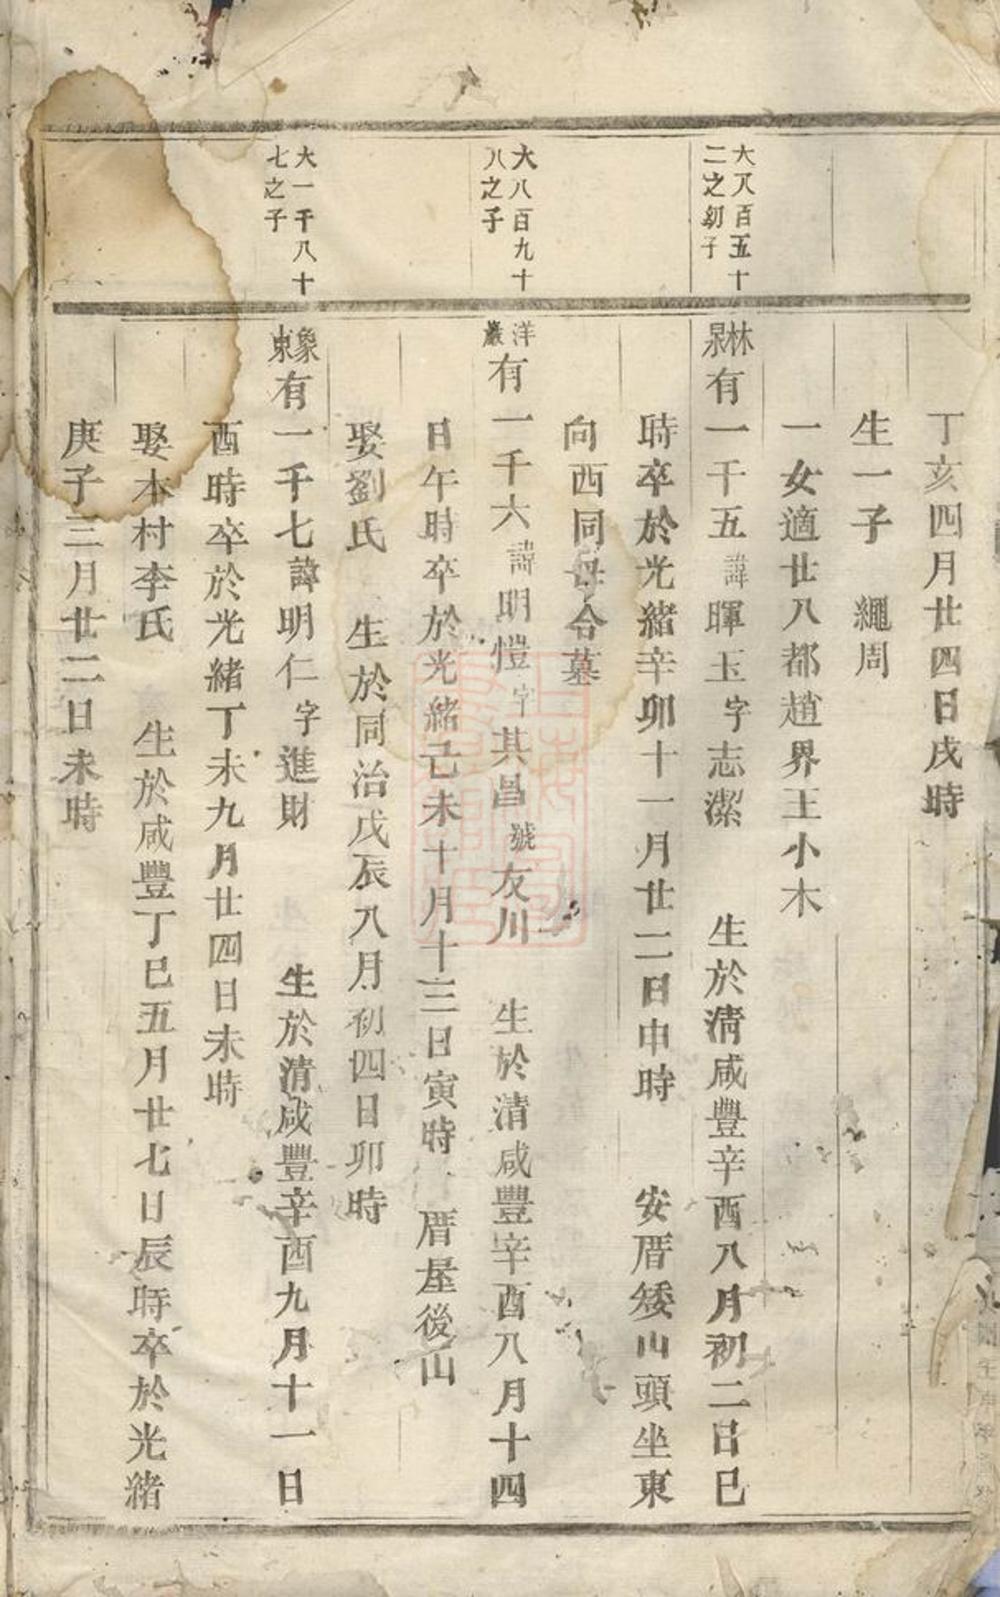 丁亥四月廿四日戌時
生一子　繩周
一女適廿八都趙界王小木
大八百五十
二之幼子
林
泉
有一千五諱暉玉字志潔　生於清咸豐辛酉八月初二日巳
時卒於光緒辛卯十一月廿二日申時　安厝矮山頭坐東
向西同母合墓
大八百九十
八之子
洋
巖
有一千六諱明愷字其昌號友川　生於清咸豐辛酉八月十四
日午時卒於光緒己未十月十三日寅時　厝屋後山
娶劉氏　生於同治戊辰八月初四日卯時
大一千八十
七之子
象
東
有一千七諱明仁字進財　生於清咸豐辛酉九月十一日
酉時卒於光緒丁未九月廿四日未時
娶本村李氏　生於咸豐丁巳五月廿七日辰時卒於光緒
庚子三月廿二日未時